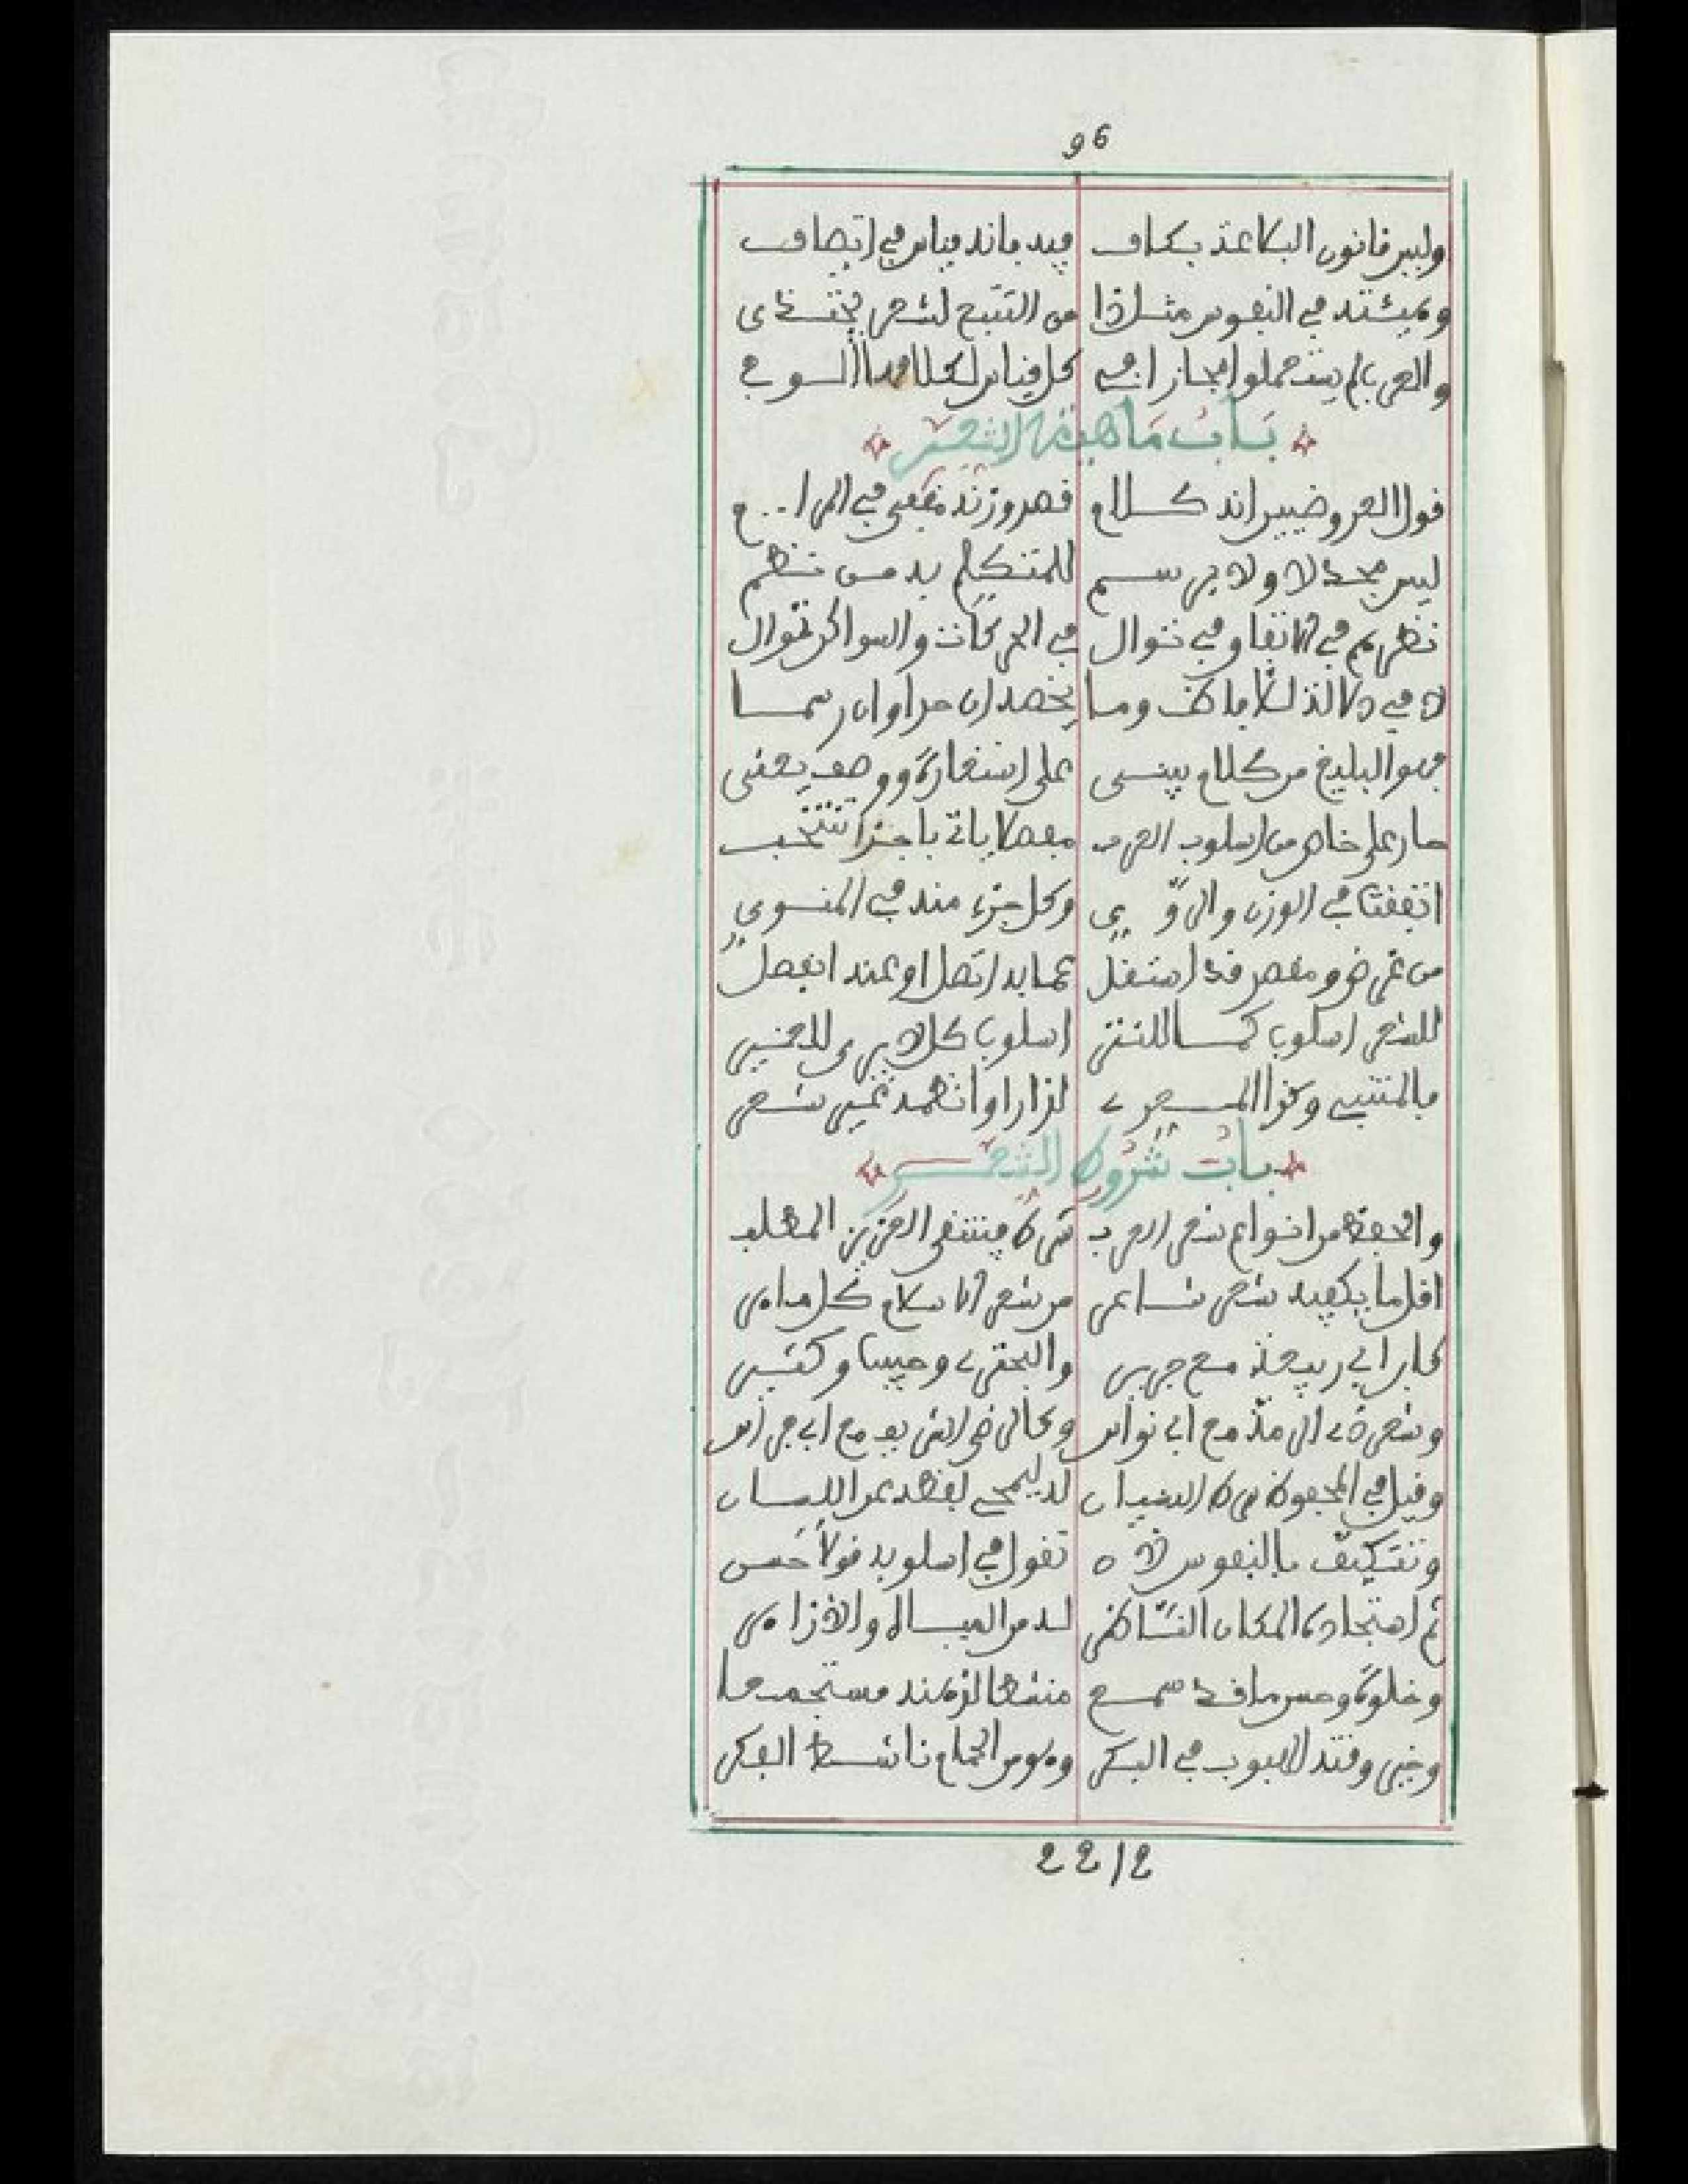 96
وليس قانون البلاغة بكاف فيه فإنه قياس في اتصاف
في النفوس مثل ذا من التتبع لشعر يحتذى
والعرب لم يستعملوا كل قياس
باب ماهية الشعر
قول العروضيين انه كلام قصد وزنه مقفى في المرا..م
ليس بحد لا ولا برسم للمتكلم به من نظم
نظرهم في الاتفاق في توال في الحركات والسواكن توال
لا في دلالة لالفاظ وما يخصه ان حدا وان رسما
فهو البليغ من كلام يبنى على استعارة ووصف يعنى
جار على خاص من اسلوب العرب مفصلا باتي باجزا تنتخب
اتفقتا في الوزن والروي وكل جزء منه في المنوي
من غرض ومقصد قد استقل عما به اتصل او عنه انفصل
للشعر اسلوب كما للنثر اسلوب كل لا يرى للاخر
فالمتنبي وكذا المعري لذا راوا نظمه غير شعر
باب شروط الشعر
والحفظ من انواع شعر العرب شرط فينتقى العزيز المطلب
اقل ما يكفيه شعر شاعر من شعر الاسلام كل ماهر
كابن ابي ربيعة مع جرير والبحتري وحبيب وكثير
وشعر ذي الرمة مع ابي نواس وكالرضي الشريف مع ابي فراس
وقيل في المحفوظ شرط النسيان له ليمحى لفظه عن اللسان
وتتكيف بالنفوس لاه تقول في اسلوبه قولا حسن
ثم استجادة المكان الناظر له من المياه والازاهر
وخلوة وحسن ما قد سمع منشطا لذهنه مستجمعا
وخير وقته الهبوب في البكر وهو من الجمام ناشط الفكر
2212